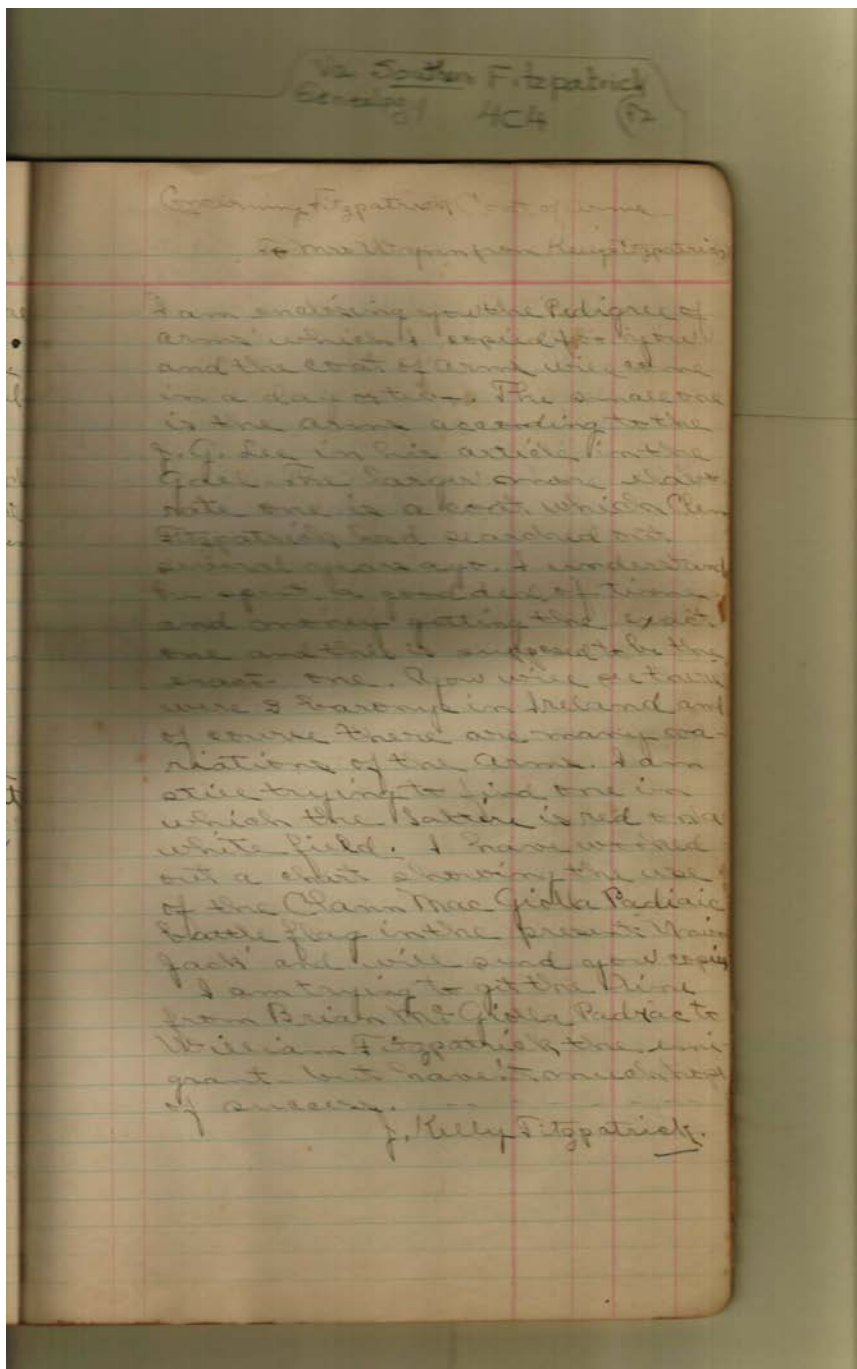 Va Southern Fitzpatrick
Genealogy 4C4 F2
Concerning Fitzpatrick Coat of arms
To Mrs from Kelly Fitzpatrick
I am enclosing you the Pedigree of
arms which I copied for you
and the coat of arms will come
in a day or two. The small one
is the arms according to the
J. G. Lee in his article in the
Gael. The larger more elabo
rate one is a coat which Clem
Fitzpatrick had searched out
several years ago. I understand
he spent a good deal of time
and money getting the exact
one and this is supposed to be the
exact one. You will see there
were 3 baronys in Ireland and
of course there are many va-
riations of the arms. I am
still trying to find one in
which the Saltire is red on a
white field. I have worked
out a chart showing the use
of the Clann Mac Giolla Padraic
battle flag in the present Union
Jack and will send you copies
I am trying to get the line
from Brian Mc Giolla Padraic to
William Fitzpatrick the emi-
grant but haven't much hope
of success.
J. Kelly Fitzpatrick.